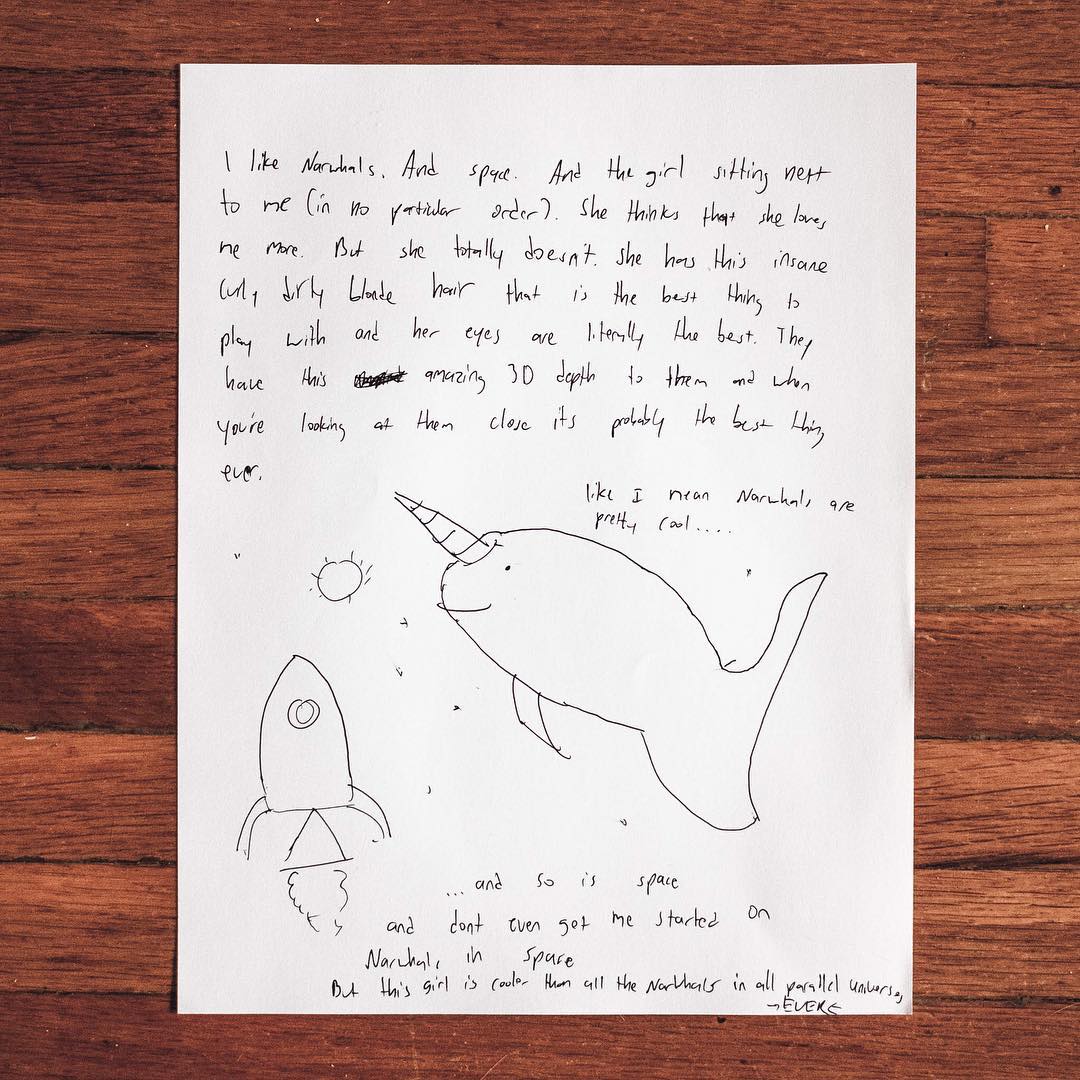 I like Narwhals. And space. And the girl sitting next
to me (in no particular order). She thinks that she loves
me more. But she totally doesn't. She has this insane
curly dirty blonde hair that is the best thing to
play with and her eyes are literally the best. They
have this amazing 3D depth to them and when
you're looking at them close its probably the best thing
ever.
like I mean Narwhals are
pretty cool....
...and so is space
and dont even get me started on
Narwhals in space
But this girl is cooler than all the Narwhals in all parallel universes